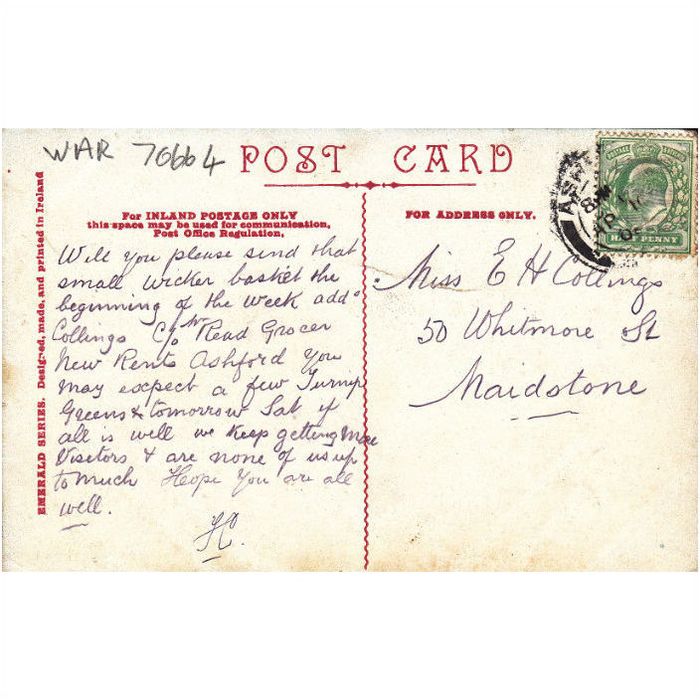 WAR 70664
POST CARD
EMERALD SERIES. Designed, made, and printed in Ireland
For INLAND POSTAGE ONLY
this space may be used for communication,
Post Office Regulation.
Will you please send that
small wicker basket the
beginning of the week add
Collings C/o Mr Read Grocer
New Rents Ashford You
may expect a few Turnip
Greens & tomorrow Sat if
all is well we keep getting more
Visitors & are none of us up
to much Hope You are all
well.
FOR ADDRESS ONLY.
Miss E H Collings
50 Whitmore St
Maidstone
POSTAGE REVENUE
HALF PENNY